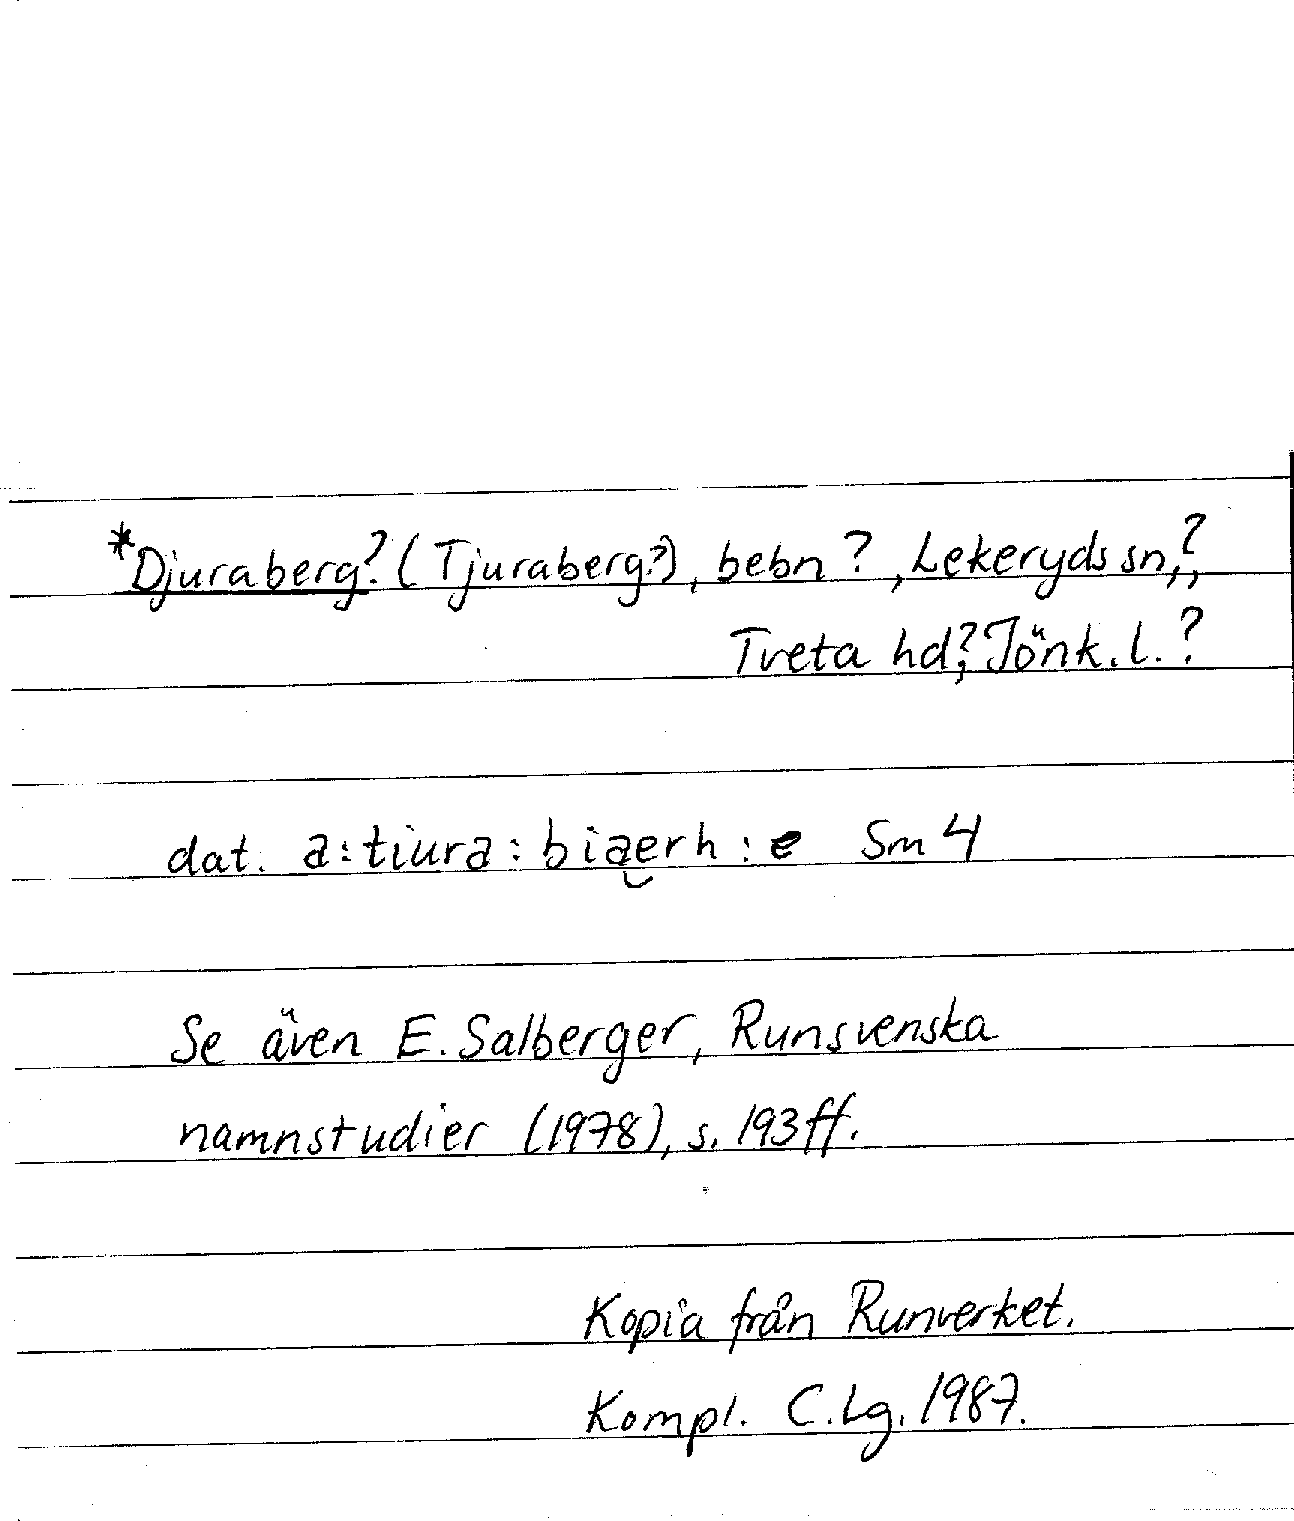 *Djuraberg? (Tjuraberg?), bebn ?, Lekeryds sn,?,
Tveta hd?, Jönk. l. ?
dat. a:tiura:biaerh:e Sm 4
Se även E. Salberger, Runsvenska
namnstudier (1978), s. 193 ff.
Kopia från Runverket.
Kompl. C. Lg. 1987.